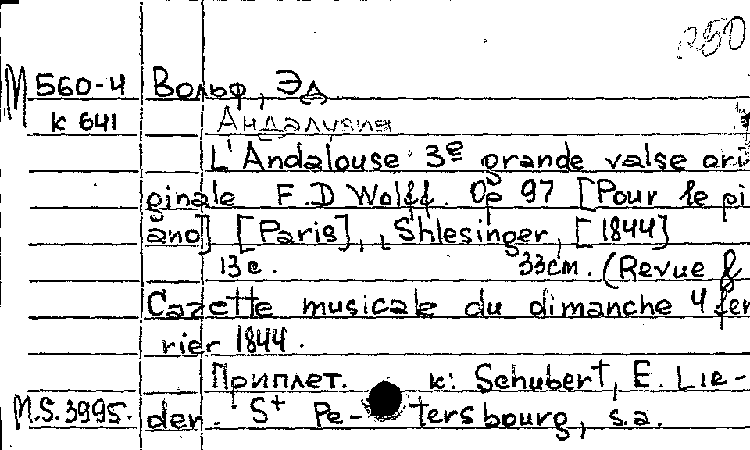 R50
М Б60-4 Вольф, Эд
к 641 Андалузия
L'Andalouse 3e grande valse ori
ginale F.D Wolff. Op 97 [Pour le pi
ano] [Paris], Shlesinger, [1844]
13 с. 33 см. (Revue &
Cazette musicale du dimanche 4 fev
rier 1844.
Приплет. к: Schubert, E. Lie-
M.S.3995. der. St Pe-tersbourg, s.a.